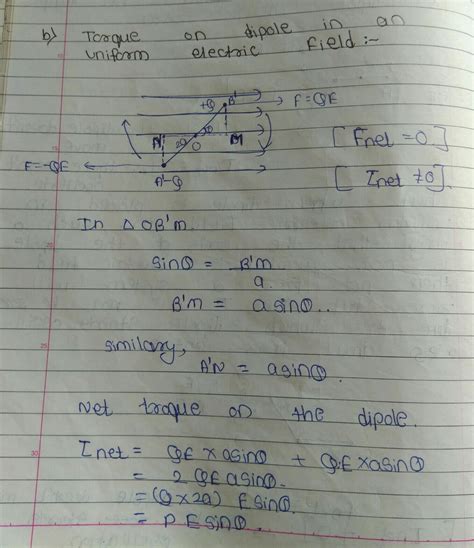 b) Torque on dipole in an
uniform electric field :-
+Q B' F=QE
N θ θ O M
F=-QE A'-Q
[ Fnet = 0 ]
[ Inet ≠0 ]
20
In △ OB'M.
sinθ = B'M
a.
B'M = a sinθ..
25
similary,
A'N = asinθ.
Net torque on the dipole.
30
Inet = QE x asinθ + QE x asinθ
= 2 QE asinθ.
= (Q x 2a) E sinθ.
= P E sinθ.